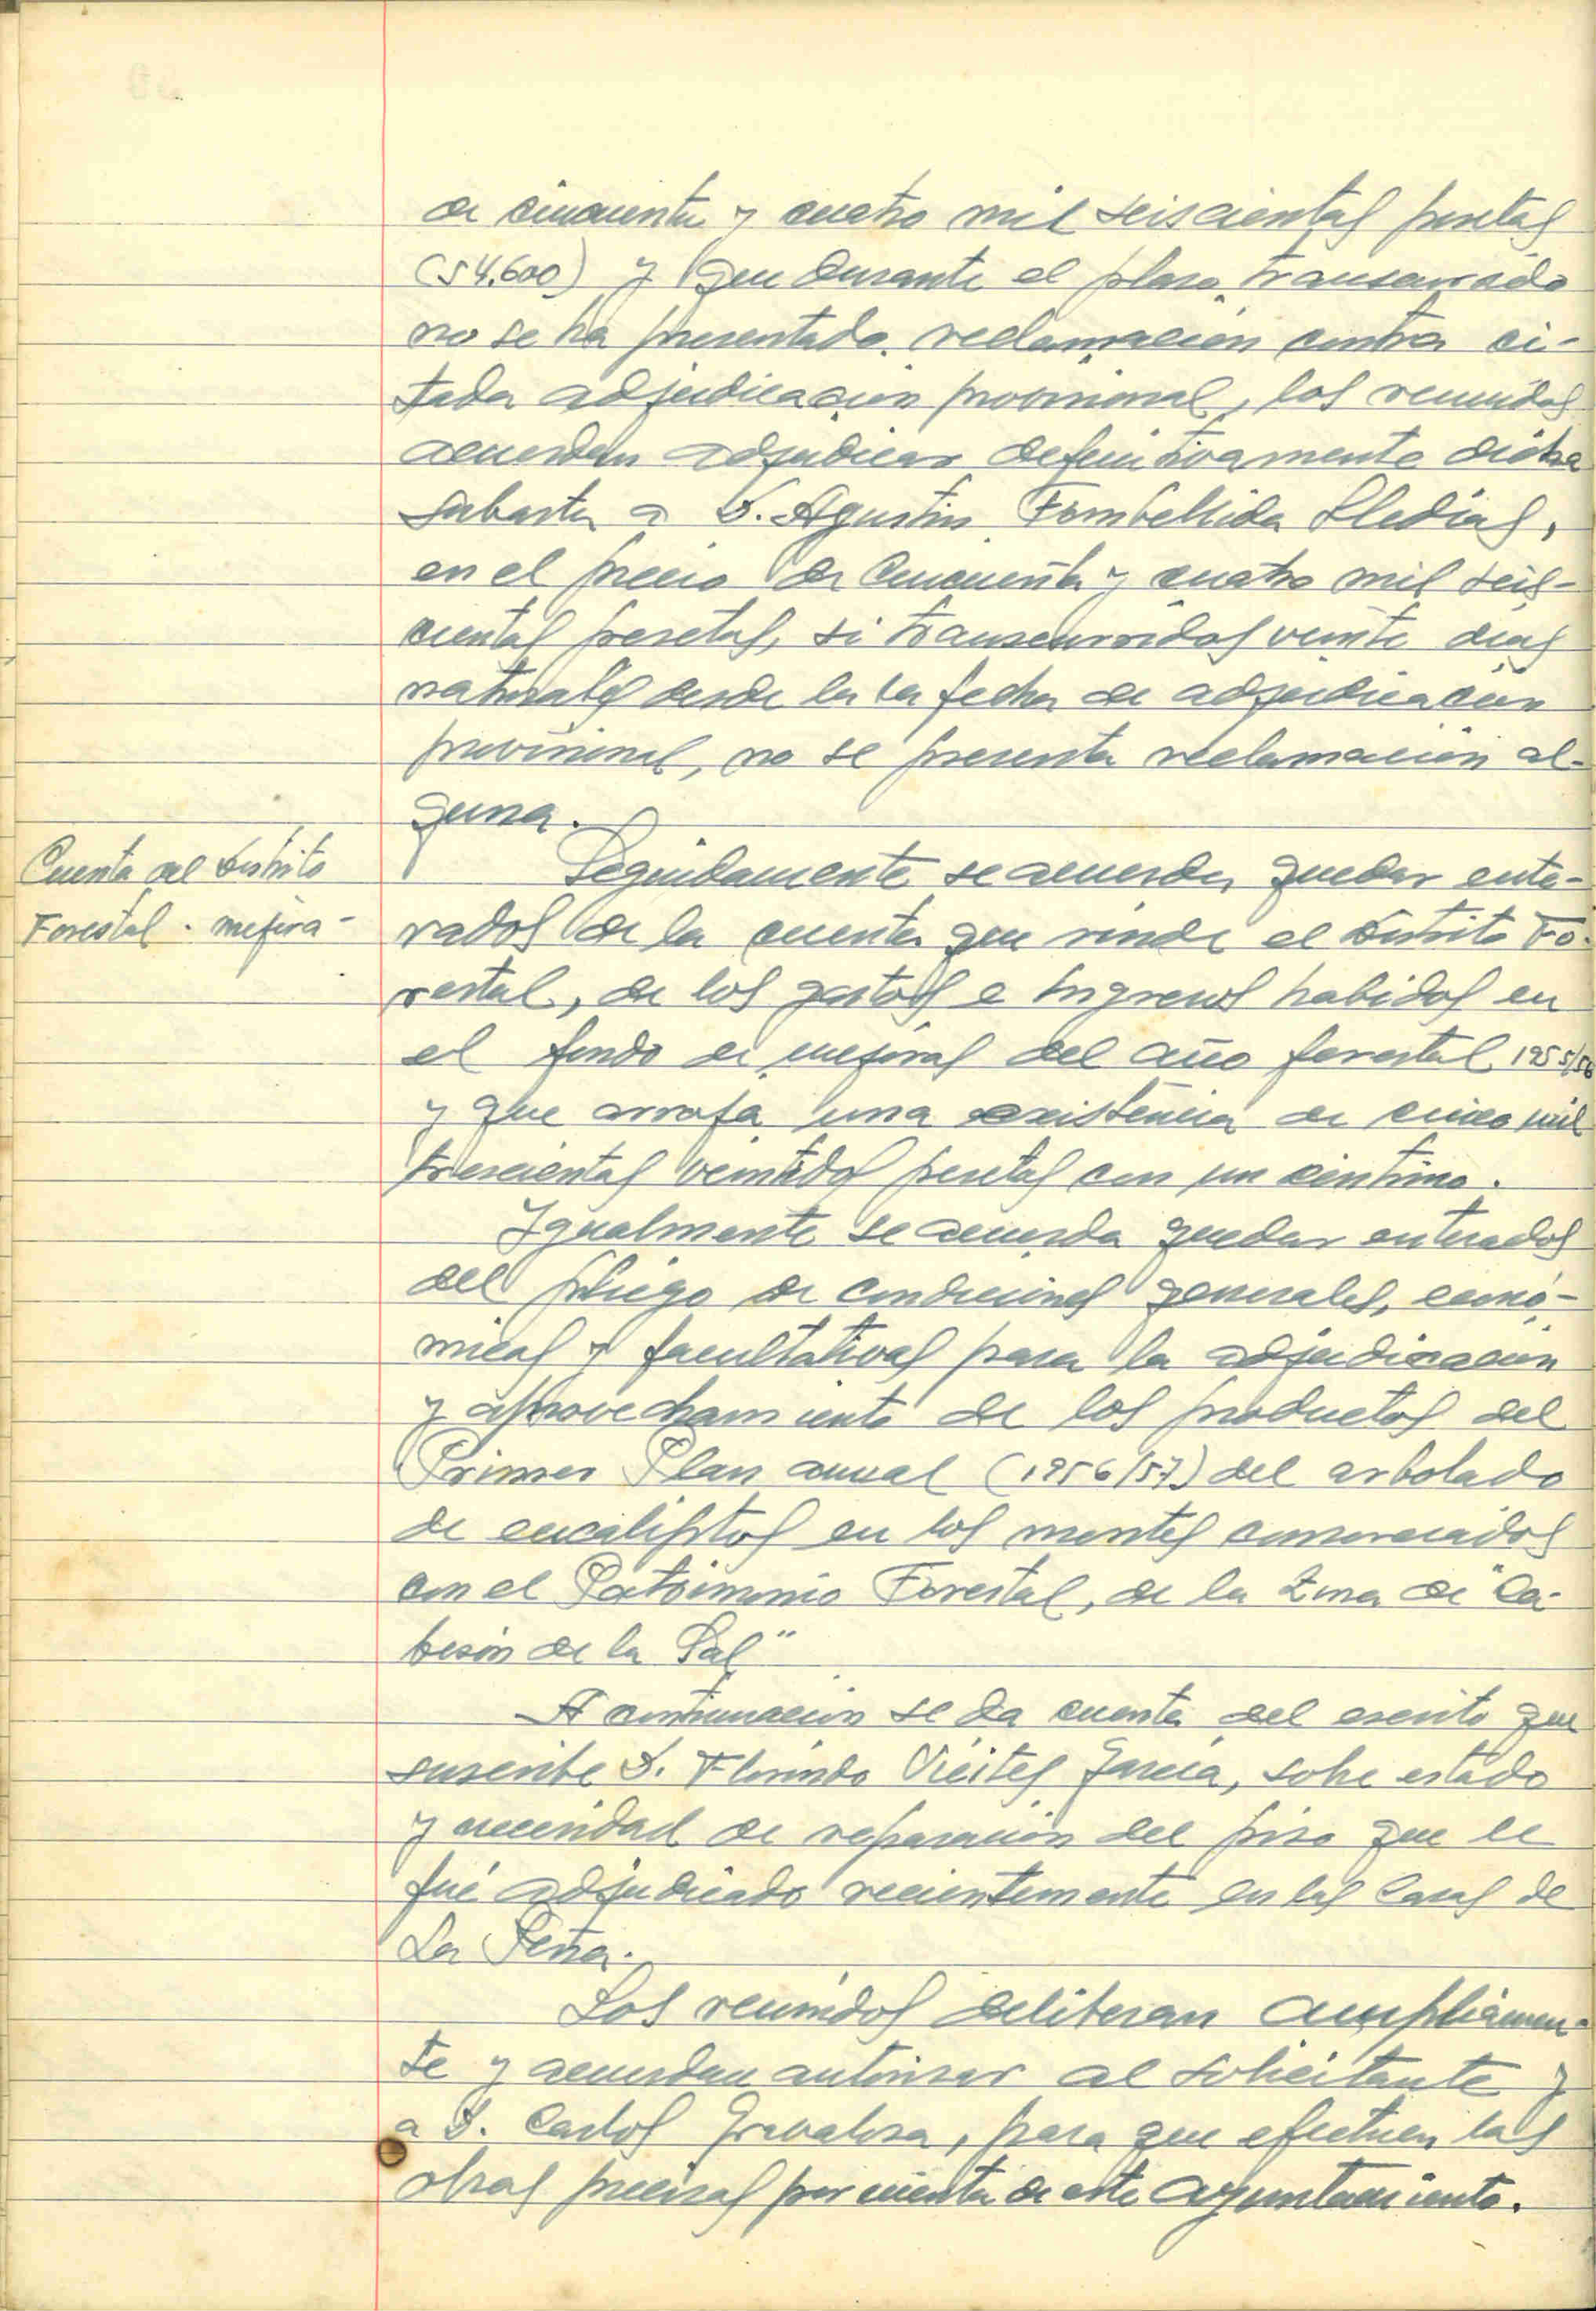 de cincuenta y cuatro mil seiscientas pesetas
(54.600) y que durante el plaso transcurrido
no se ha presentado reclamación contra ci-
tada adjudicación provisional, los reunidos
acuerdan adjudicar definitivamente dicha
subasta a D. Agustin Fombellida Lledias,
en el precio de Cincuenta y cuatro mil seis-
cientas pesetas, si transcurridos veinte dias
naturales desde la la fecha de adjudicación
provisional, no se presenta reclamación al-
guna.
Cuenta del Distrito
Forestal. mejora-
Seguidamente se acuerda quedar ente-
rados de la cuenta que rinde el Distrito Fo-
restal, de los gastos e Ingresos habidos en
el fondo de mejoras del año forestal 1955/56
y que arroja una existencia de cinco mil
trescientas veintidos pesetas con un céntimo.
Igualmente se acuerda quedar enterados
del pliego de condiciones generales, econó-
micas y facultativas para la adjudicación
y aprovechamiento de los productos del
Primer Plan anual (1956/57) del arbolado
de eucaliptos en los montes consorciados
con el Patrimonio Forestal, de la Zona de "Ca-
bezón de la Sal"
A continuación se da cuenta del escrito que
suscribe D. Florindo Vieites García, sobre estado
y necesidad de reparación del piso que le
fué adjudicado recientemente en las Casas de
La Peña.
Los reunidos deliberan ampliamen-
te y acuerdan autorizar al solicitante y
a D. Carlos para que efectuen las
obras precisas por cuenta de este Ayuntamiento.